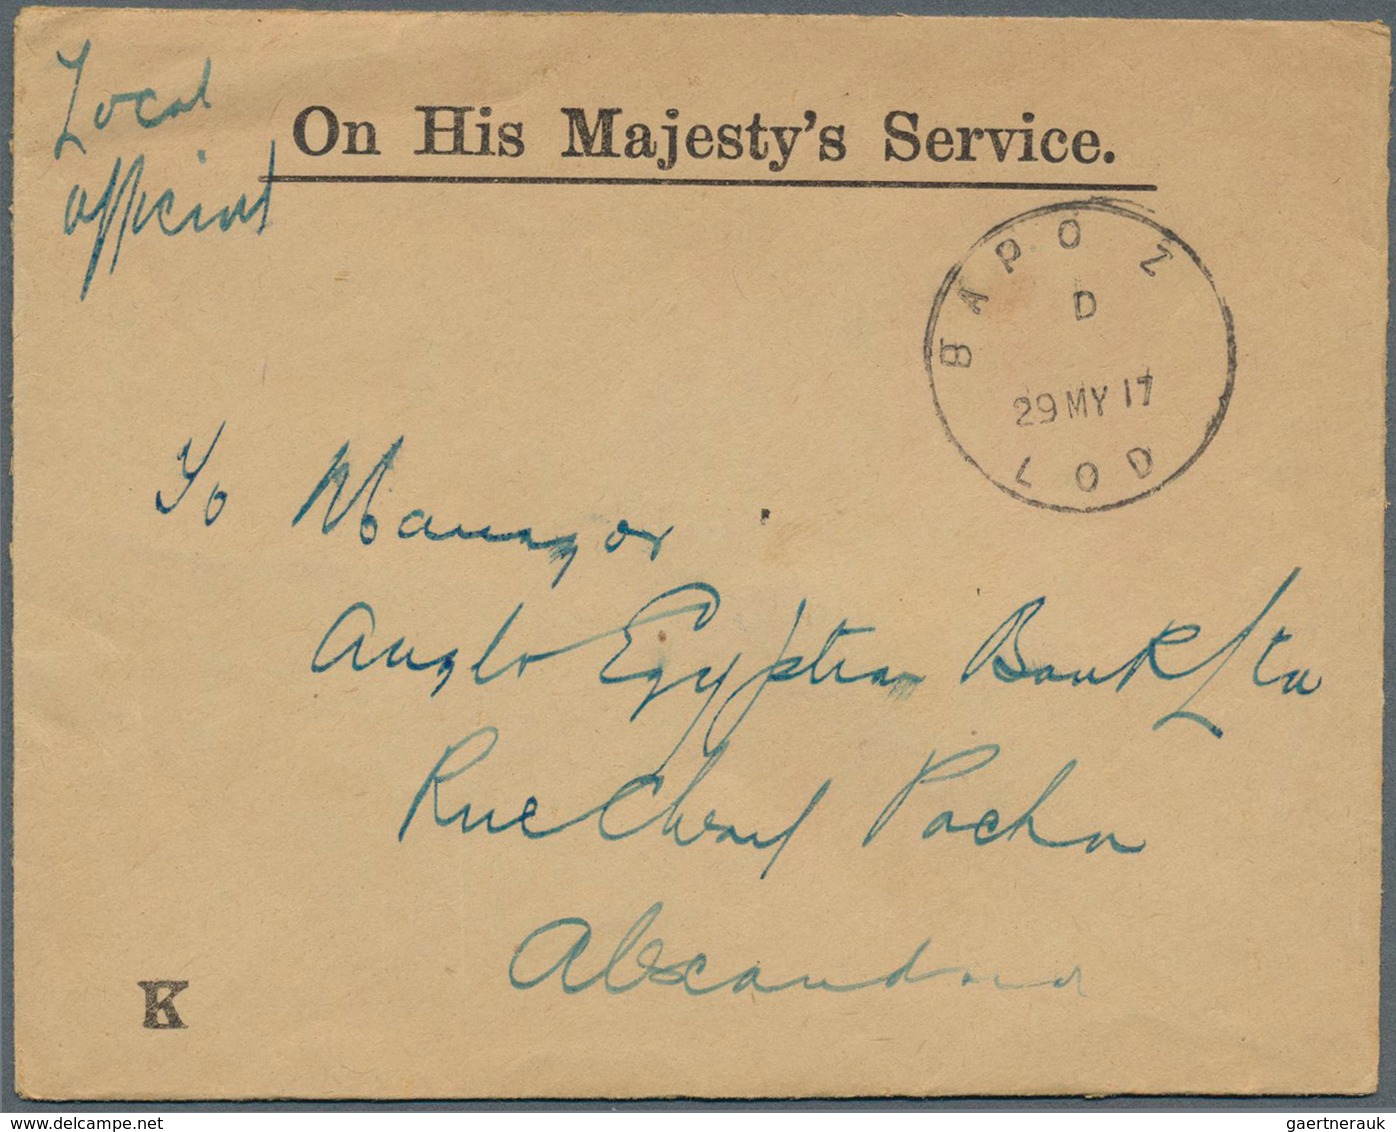 Local
official
On His Majesty's Service.
BAPO Z
D
29 MY 17
LOD
To Manager
Anglo Egyptian Bank Ltd
Rue Cherif Pacha
Alexandria
K
gaertnerauk